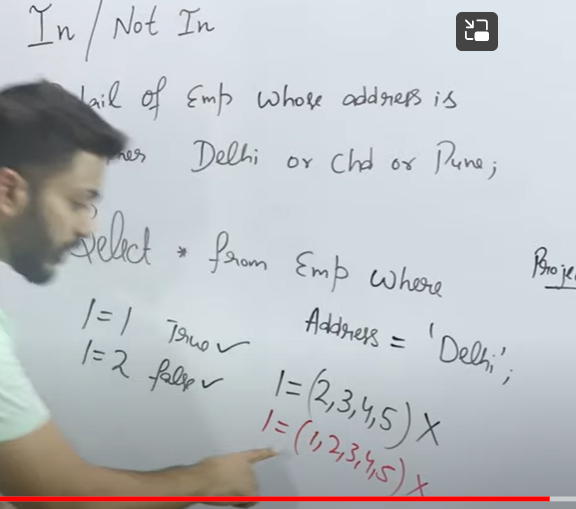 In / Not In
of Emp whose address is
Delhi or Chd or Pune;
Select * from Emp where
Address = 'Delhi';
1=1 True ✓
1=2 false ✓
1=(2,3,4,5) X
1=(1,2,3,4,5) x